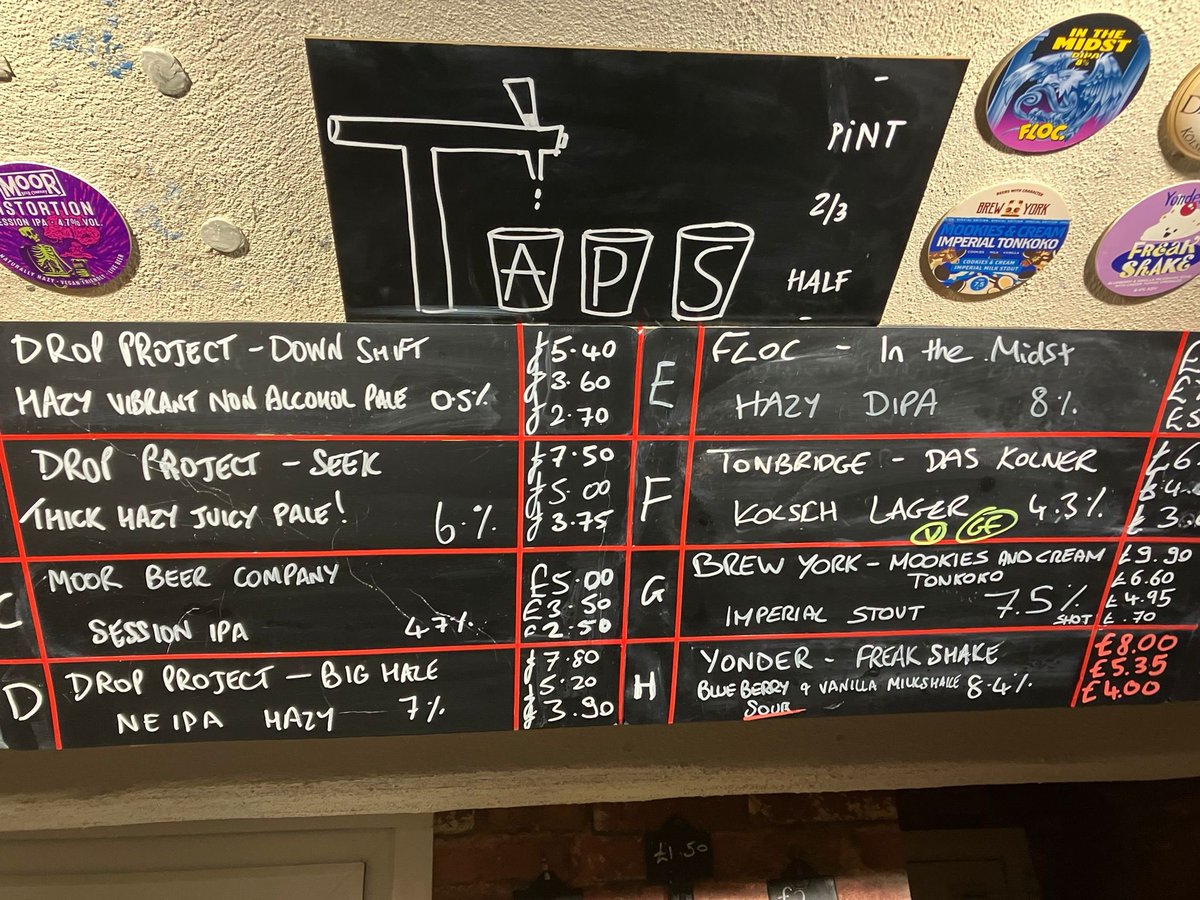 TAPS
PINT
2/3
HALF
DROP PROJECT - DOWN SHIFT
HAZY VIBRANT NON ALCOHOL PALE 0.5%
£5.40
£3.60
£2.70
DROP PROJECT - SEEK
THICK HAZY JUICY PALE! 6.%
£7.50
£5.00
£3.75
C
MOOR BEER COMPANY
SESSION IPA 4.7%
£5.00
£3.50
£2.50
D
DROP PROJECT - BIG HAZE
NEIPA HAZY 7%
£7.80
£5.20
£3.90
E
FLOC - In the Midst
HAZY DIPA 8%
F
TONBRIDGE - DAS KOLNER
KOLSCH LAGER 4.3%
V GF
£6.
G
BREW YORK - MOOKIES AND CREAM
TONKOKO
IMPERIAL STOUT 7.5%
SHOT
£9.90
£6.60
£4.95
£.70
H
YONDER - FREAK SHAKE
BLUEBERRY & VANILLA MILKSHAKE 8.4%
SOUR
£8.00
£5.35
£4.00
MOOR
ISTORTION
SESSION IPA · 4.7% VOL.
NATURALLY HAZY · VEGAN FRIENDLY · LIVE BEER
IN THE
MIDST
DIPA
8%
FLOC.
BREW YORK
MOOKIES & CREAM
IMPERIAL TONKOKO
COOKIES MILK VANILLA
COOKIES & CREAM
IMPERIAL MILK STOUT
7.5
Yonder
FREAK
SHAKE
£1.50